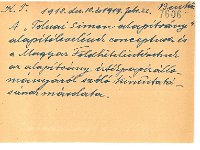 K. I. 1918. dec. 10. és 1919. febr. 22.
1636
A „Tolnai Simon-alapítvány"
alapítólevelének conceptusa és
Magyar Földhitelintézetnek
az alapítvány értékpapírállo-
mányáról szóló kimutatá-
sának másolata.